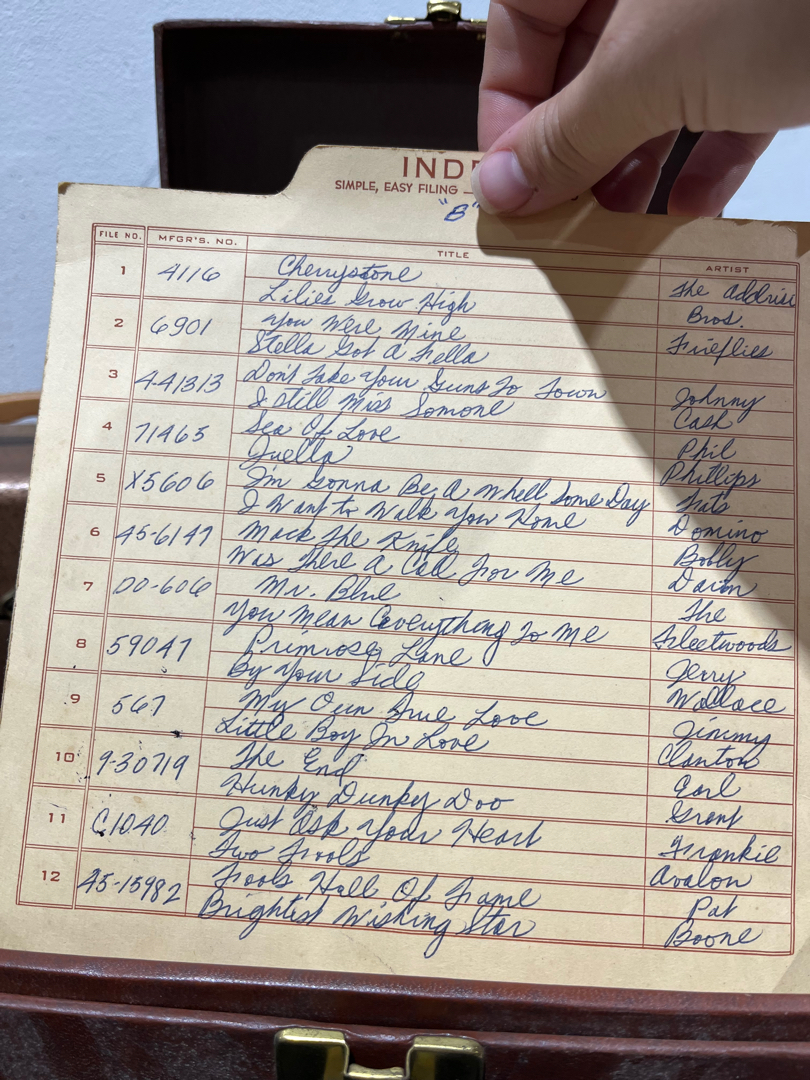 IND
SIMPLE, EASY FILING —
"B"
FILE NO. MFGR'S. NO. TITLE ARTIST
1 4116 Cherrystone The Addrisi
Lilies Grow High Bros.
2 6901 You Were Mine Fireflies
Stella Got A Fella
3 4-41313 Don't Take Your Guns To Town Johnny
I Still Miss Somone Cash
4 71465 Sea Of Love Phil
Juella Phillips
5 X5606 I'm Gonna Be A Whell Some Day Fats
I Want to Walk You Home Domino
6 45-6147 Mack The Knife Bobby
Was There A Call For Me Darin
7 DO-606 Mr. Blue The
You Mean Everything To Me Fleetwoods
8 59047 Primrose Lane Jerry
By Your Side Wallace
9 567 My Own True Love Jimmy
Little Boy In Love Clanton
10 9-30719 The End Earl
Hunky Dunky Doo Grant
11 C1040 Just Ask Your Heart Frankie
Two Fools Avalon
12 45-15982 Fools Hall Of Fame Pat
Brightest Wishing Star Boone